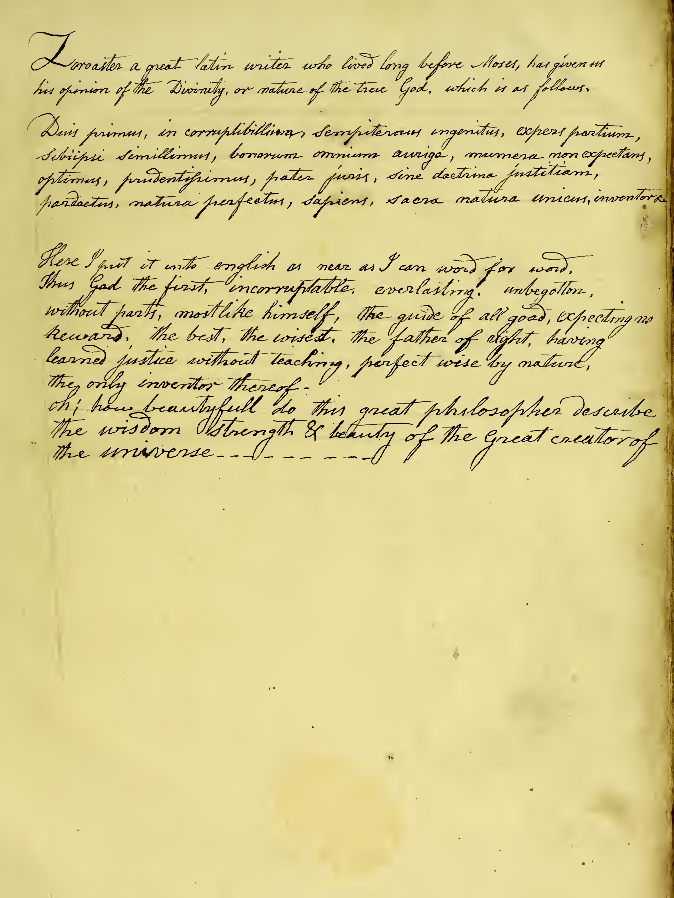 Zoroaster a great latin writer who lived long before Moses, has given us
his opinion of the Divinity, or nature of the true God, which is as follows.
Deus primus, in corruptibillium, sempiternus ingenitus, expers partium,
sibiipsi simillimus, bonorum omnium auriga, munera non expectans,
optimus, prudentissimus, pater juris, sine doctrina justitiam,
perdoctus, natura perfectus, sapiens, sacra natura unicus, inventor &
Here I put it into english as near as I can word for word.
Thus God the first, incorruptable. everlasting. unbegotton,
without parts, most like himself, the guide of all good, expecting no
Reward, the best, the wisest, the father of right, having
learned justice without teaching, perfect wise by nature,
the only inventor thereof.
oh; how beautyfull do this great philosopher describe
the wisdom strength & beauty of the Great creator of
the universe